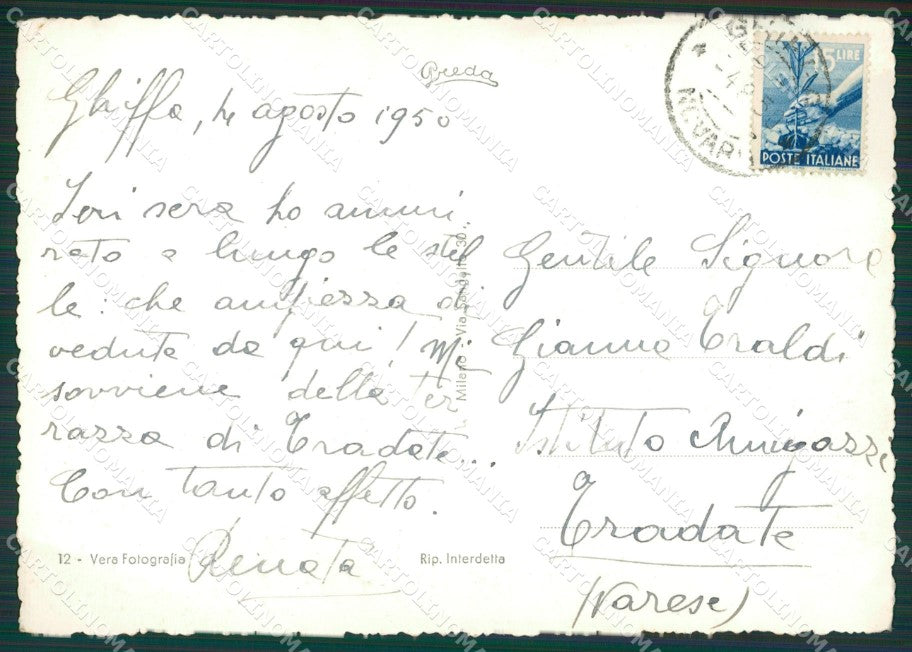 Breda
Ghiffa, 4 agosto 1950
Ieri sera ho ammi
rato a lungo le stel
le: che ampiezza di
veduta da qui! Mi
sovviene della ter
razza di Tradate...
Con tanto affetto.
Renata
12 - Vera Fotografia
Rip. Interdetta
Milano - Via
5 LIRE
POSTE ITALIANE
Gentile Signora
Gianna Eraldi
Istituto
Tradate
(Varese)
CARTOLINOMANIA